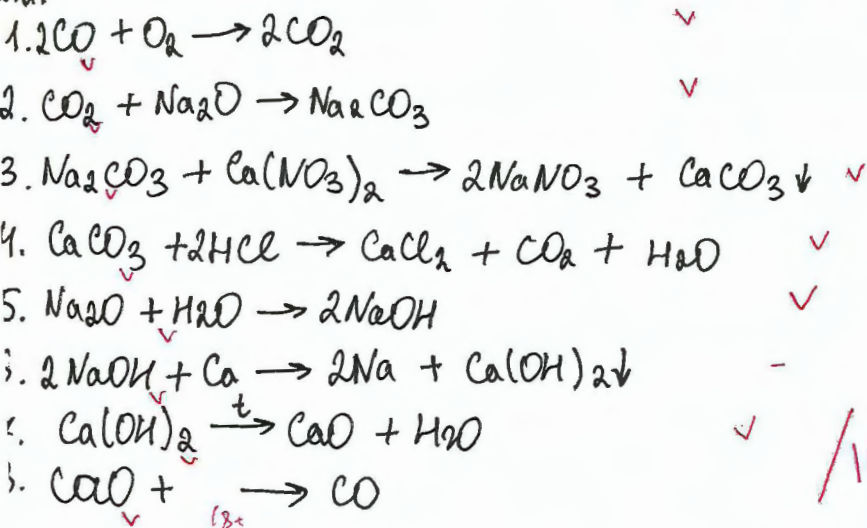 1. 2CO + O₂ → 2CO₂ ✓
2. CO₂ + Na₂O → Na₂CO₃ ✓
3. Na₂CO₃ + Ca(NO₃)₂ → 2NaNO₃ + CaCO₃↓ ✓
4. CaCO₃ + 2HCl → CaCl₂ + CO₂ + H₂O ✓
5. Na₂O + H₂O → 2NaOH ✓
2NaOH + Ca → 2Na + Ca(OH)₂↓ -
Ca(OH)₂ →ᵗ CaO + H₂O ✓
CaO + → CO